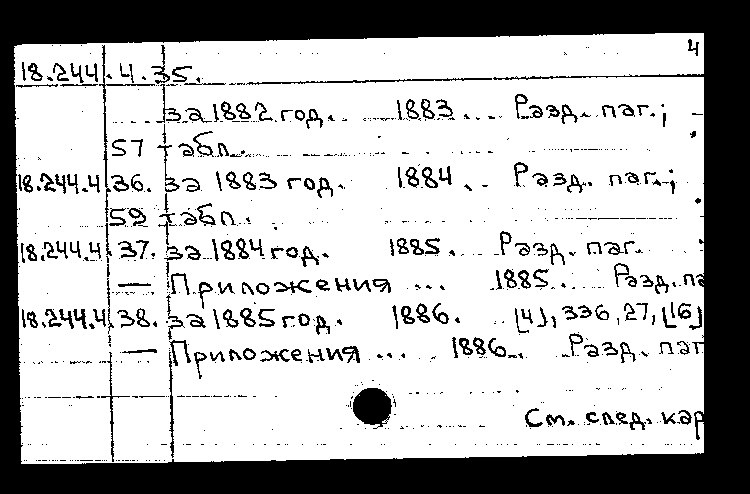 4
18.244.4.35.
за 1882 год. 1883... Разд. паг.;
57 табл.
18.244.4.36. за 1883 год. 1884... Разд. паг.;
59 табл.
18.244.4.37. за 1884 год. 1885. Разд. паг.
— Приложения ... 1885. Разд. па
18.244.4.38. за 1885 год. 1886. [4], 336, 27, [16]
— Приложения ... 1886. Разд. паг
См. след. кар